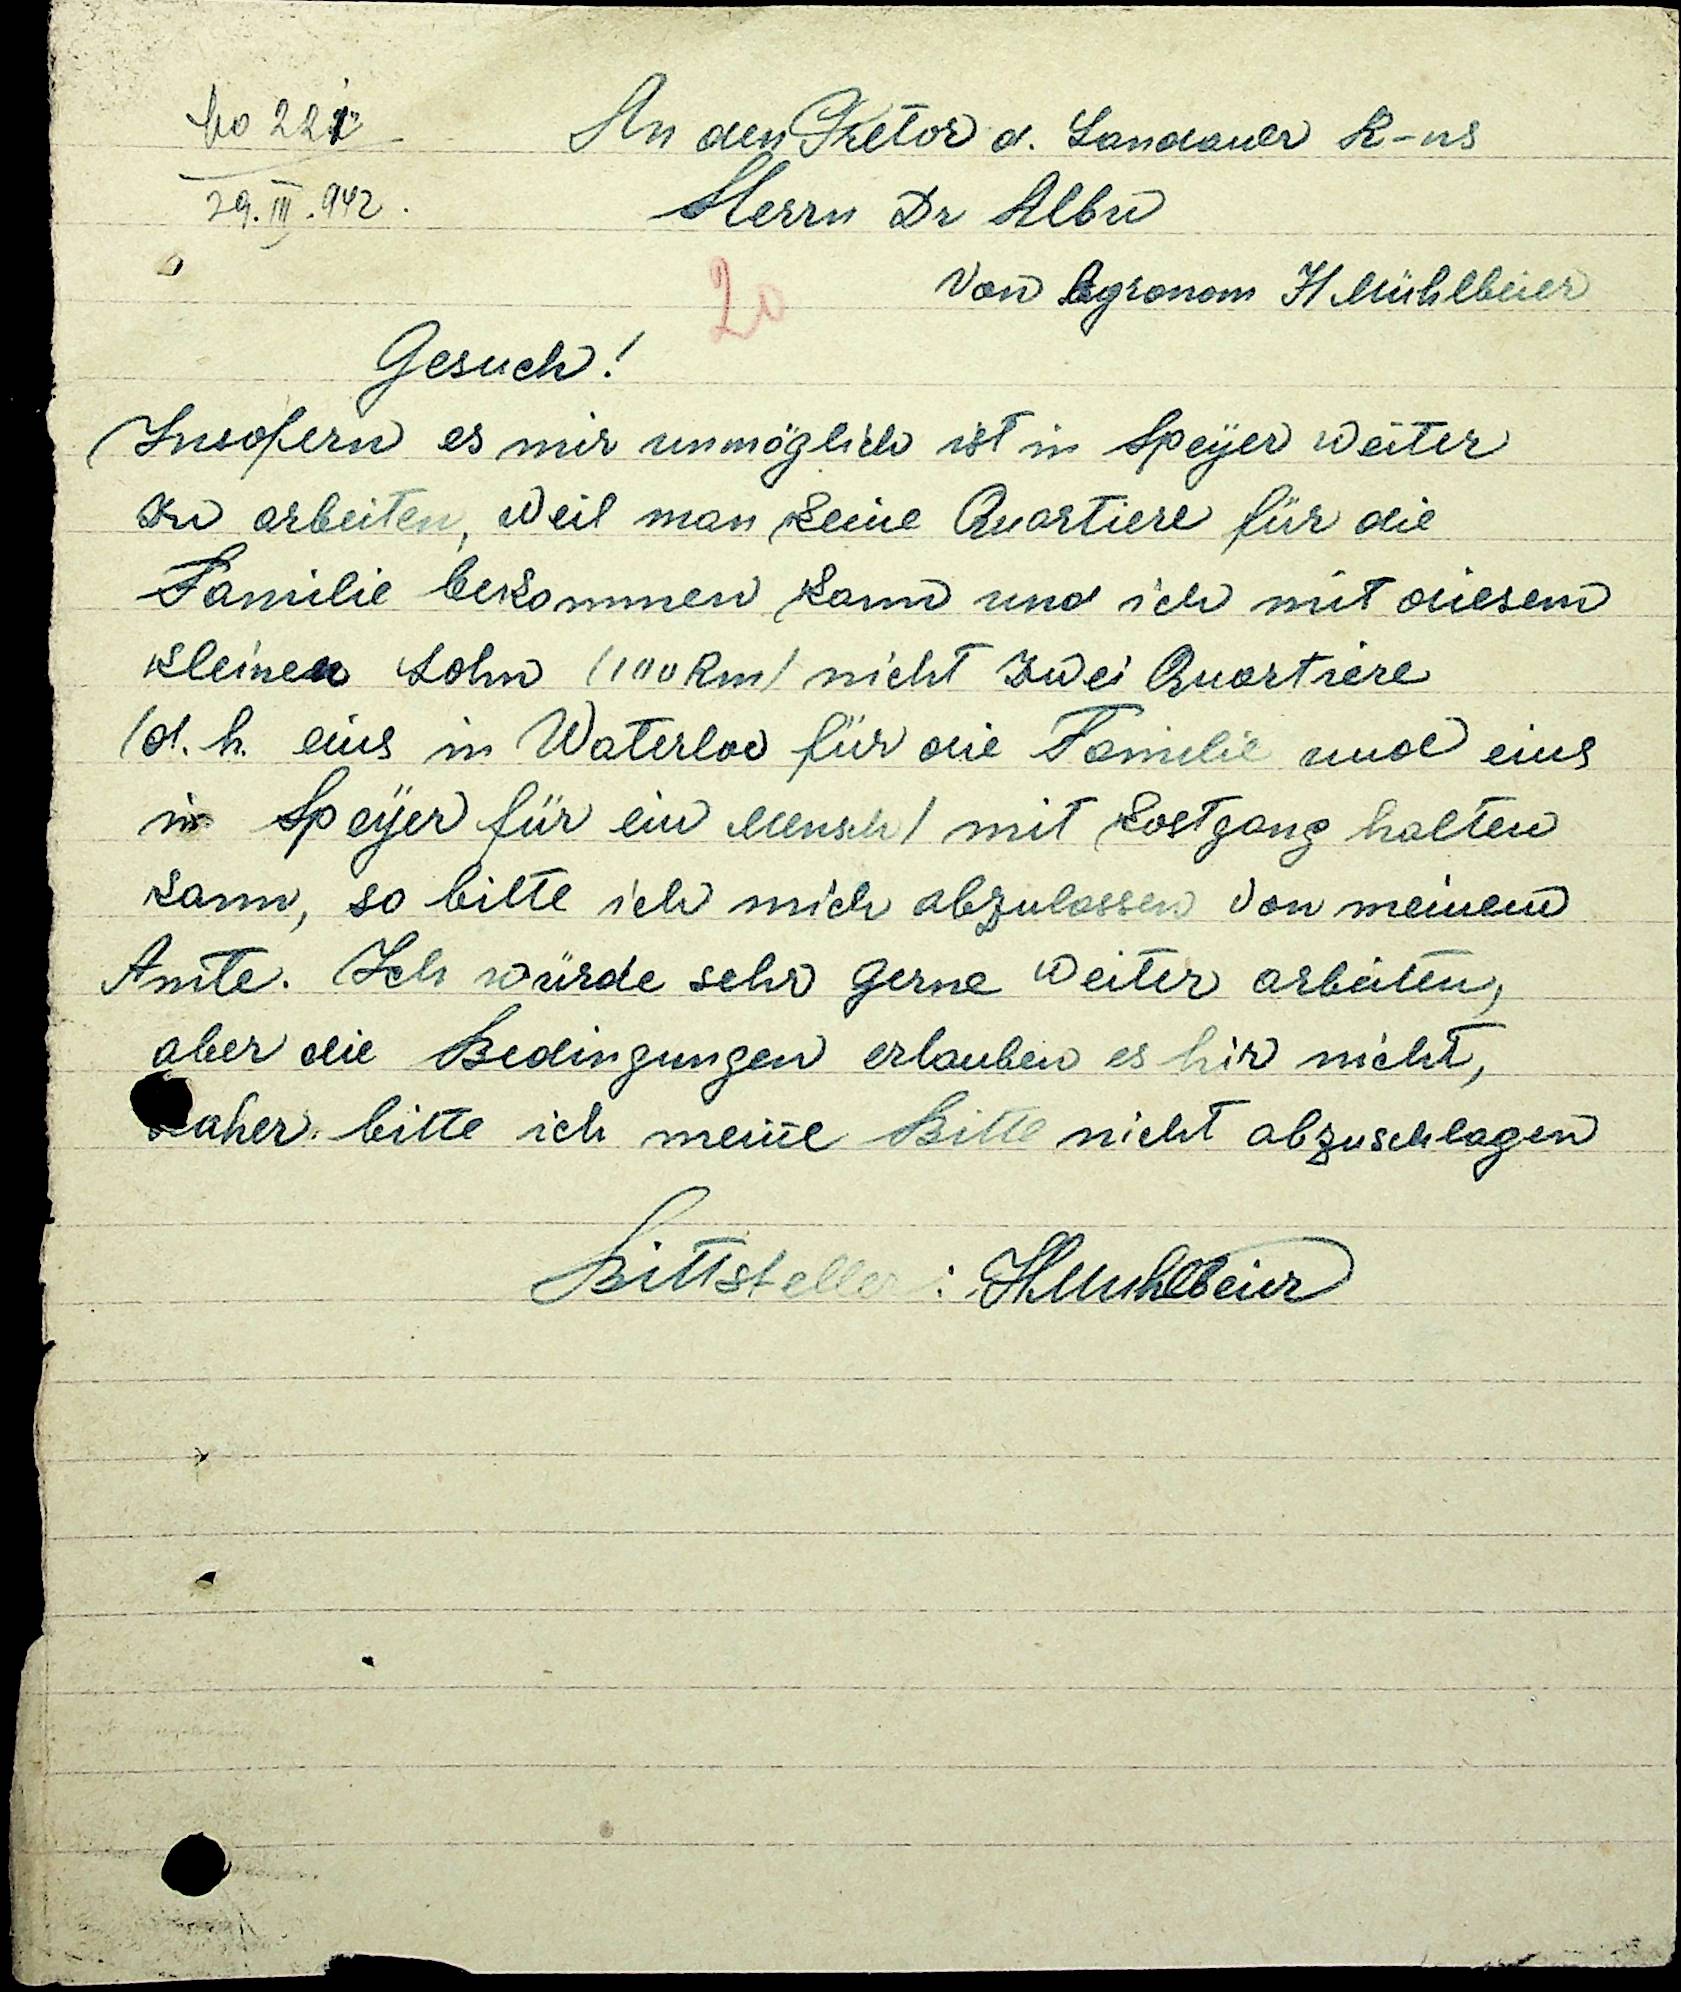 No 221
29.III.942.
An den Pretor d. Landauer R-ns
Herrn Dr Albu
20
Von Agronom H Mühlbeier
Gesuch!
Insofern es mir unmöglich ist in Speyer weiter
zu arbeiten, weil man keine Quartiere für die
Familie bekommen kann und ich mit diesem
kleinen Lohn (100 Rm) nicht zwei Quartiere
(d. h. eins in Waterloo für die Familie und eins
in Speyer für ein Mensch) mit Kostgang halten
kann, so bitte ich mich abzulassen von meinem
Amte. Ich würde sehr gerne weiter arbeiten,
aber die Bedingungen erlauben es hir nicht,
daher bitte ich meine Bitte nicht abzuschlagen
Bittsteller: HMuhlbeier